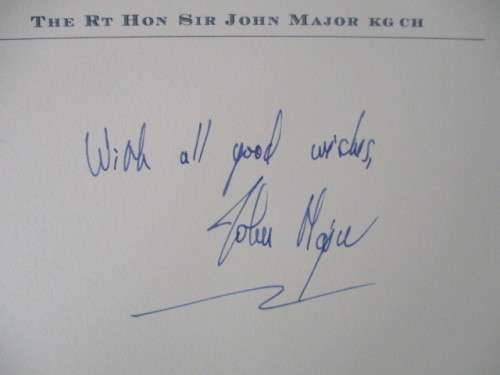 The Rt Hon Sir John Major KG CH
With all good wishes,
John Major